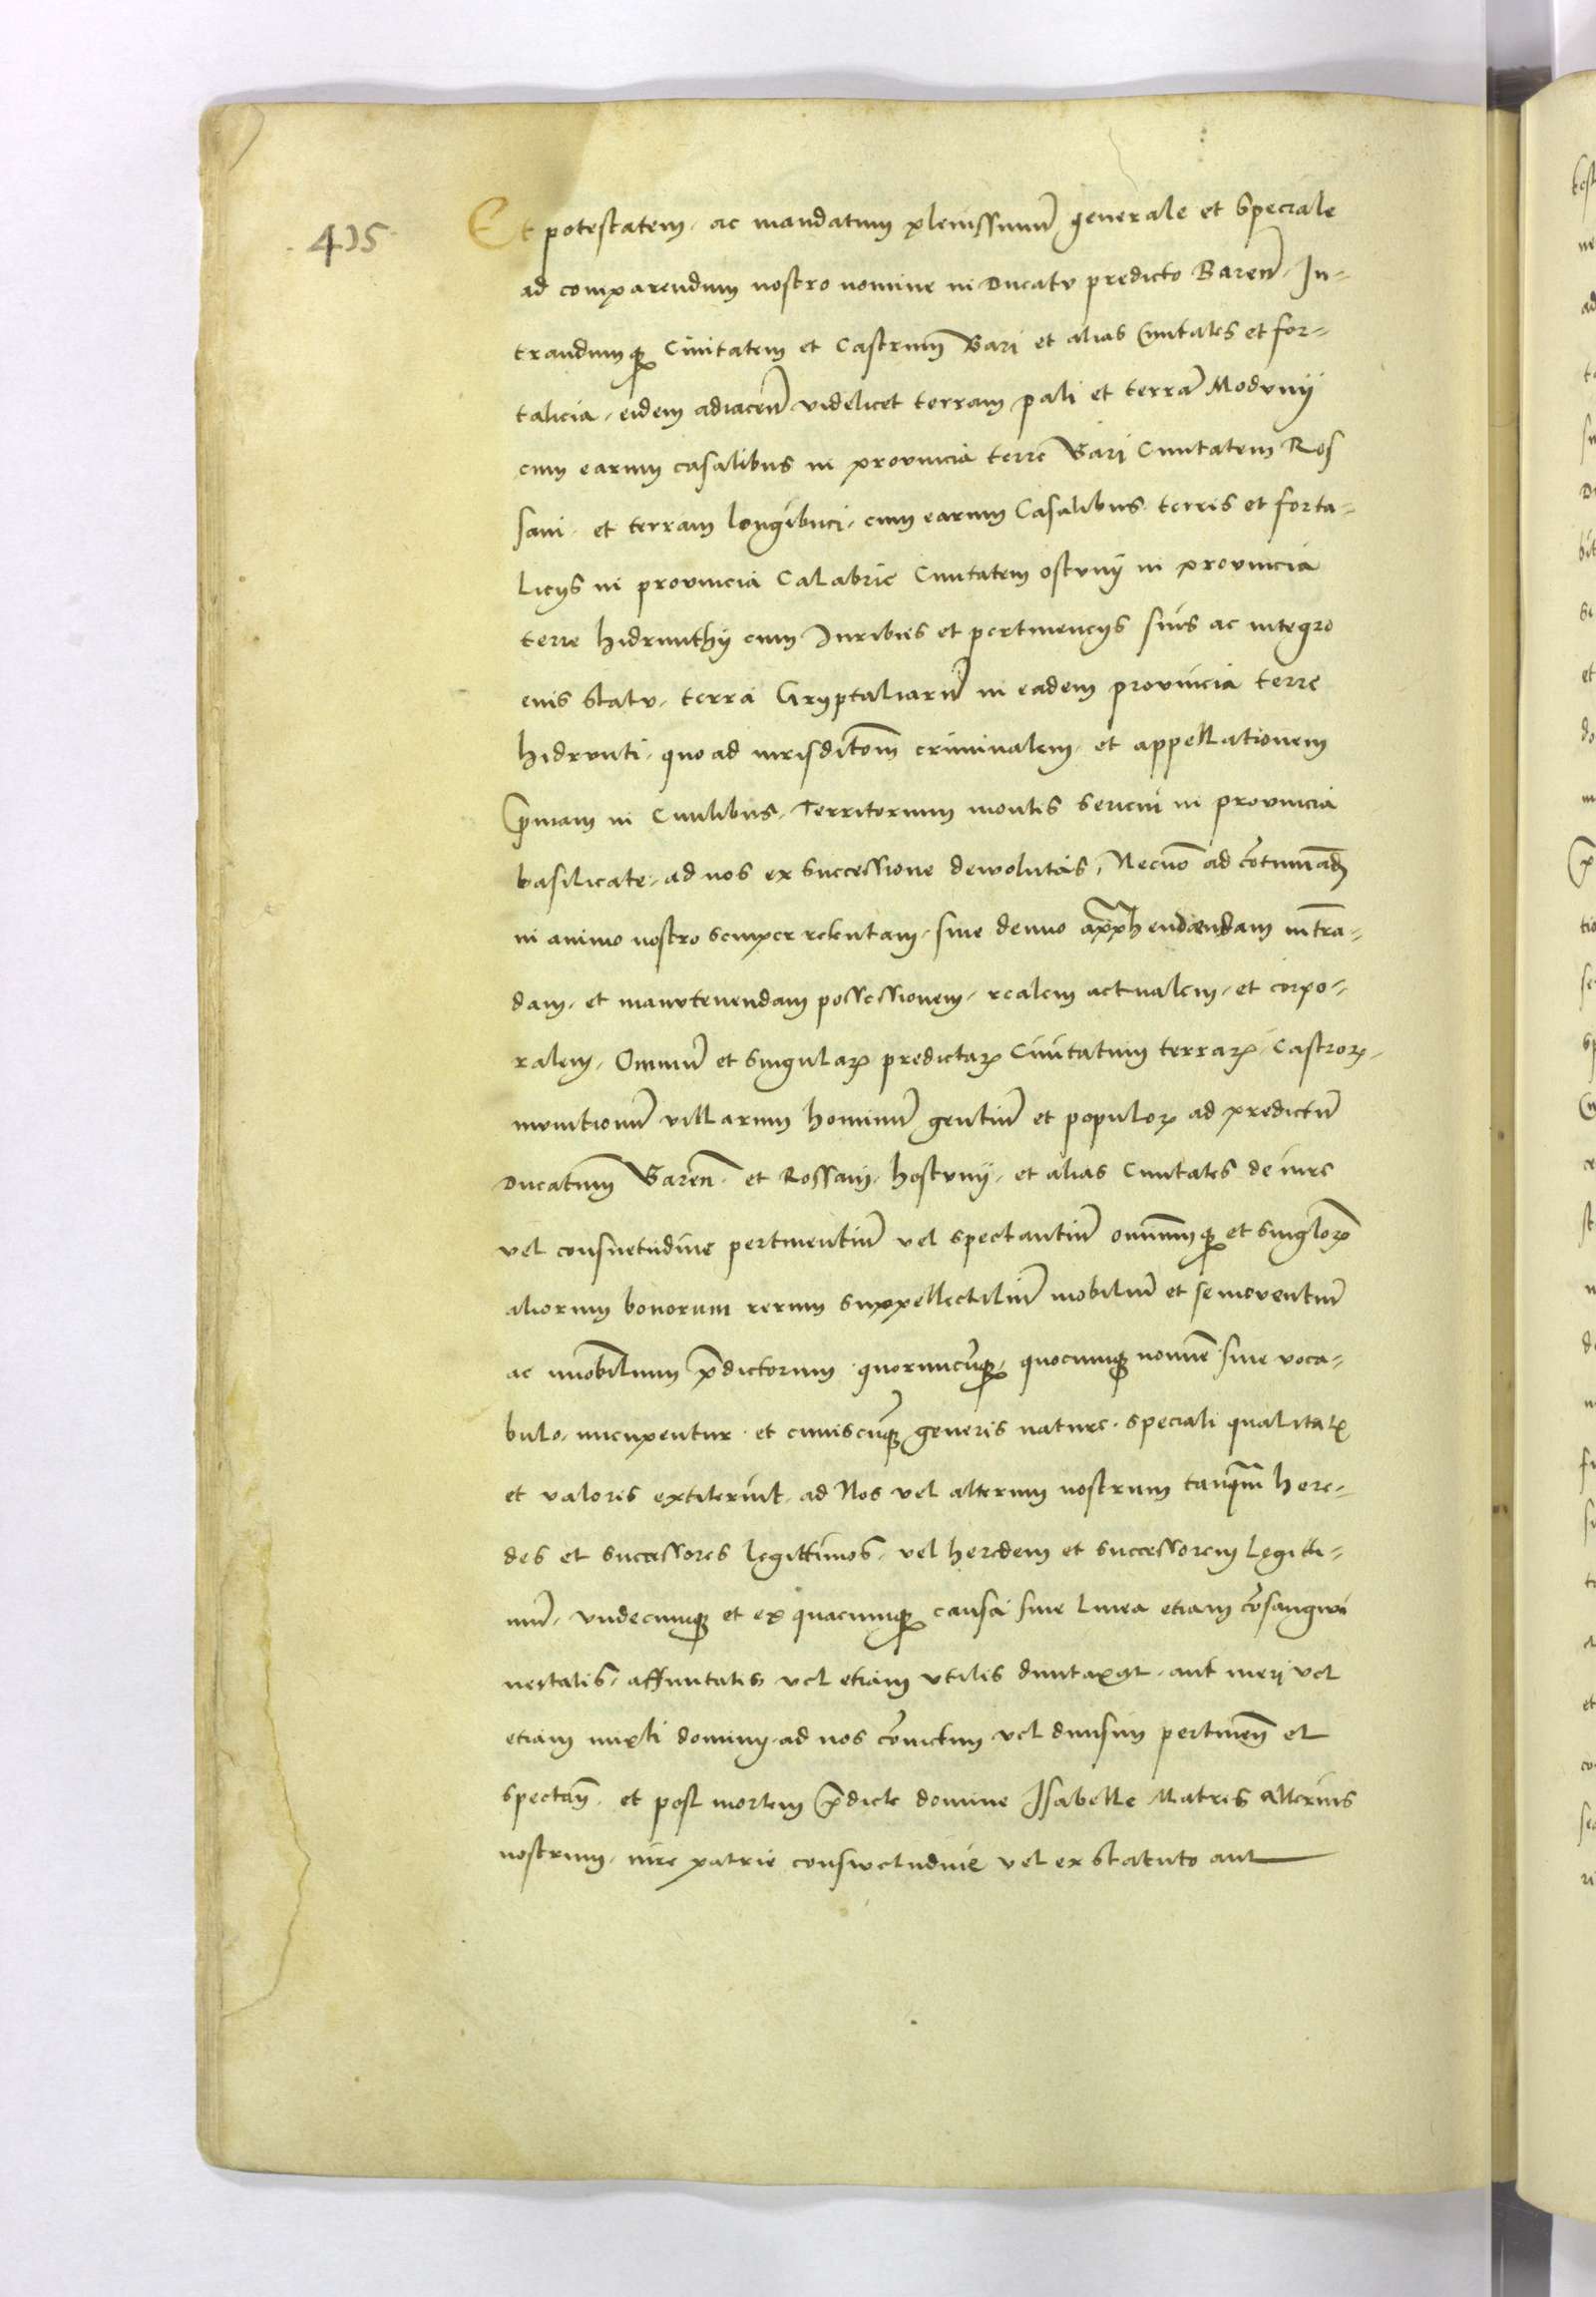 435
Et potestatem, ac mandatum plenissimũ generale et speciale
ad comparendum nostro nomine in Ducatu predicto Bareñ. In=
trandumqꝫ Civitatem et Castrum Bari et alias Civitates et for=
talicia, eidem adiaceñ videlicet terram pali et terrã Modunij
cum earum casalibus in provincia terre Bari Civitatem Ros
sani, et terram longibuci, cum earum Casalibus terris et forta=
licijs in provincia Calabrie Civitatem ostunij in provincia
terre hidrunthij cum Juribus et pertinencijs suis ac integro
eius statu, terra Gryptaliarũ in eadem provincia terre
hidrunti, quo ad iurisditiom̃ criminalem, et appellationem
p̃mam in Civilibus, Territorium montis serici in provincia
basilicate, ad nos ex successione dewolutas, Necnõ ad cõtinuãdã
in animo nostro semper retentam, sive denuo app̃hendendam intrã=
dam, et manutenendam possessionem, realem actualem, et corpo=
ralem, Omniũ et singularꝝ predictarꝝ Civitatum terrarꝝ, Castrorꝝ,
munitionũ villarum hominũ gentiũ et populorꝝ ad predictũ
Ducatum Bareñ. et Rossani, hostunij, et alias Civitates de iure
vel consuetudine pertinentiũ vel spectantiũ omniumqꝫ et singlorꝝ
aliorum bonorum rerum suppellectiliũ mobiliũ et semoventiũ
ac imobilium p̃dictorum quorumcũqꝫ, quocumqꝫ nomĩe sive voca=
bulo, nucupentur et cuiuscũqꝫ generis nature, speciali qualitatꝭ
et valoris extiterint, ad Nos vel alterum nostrum tanq̃m here=
des et successores legittimos, vel heredem et successorem legitti=
mũ, undecumqꝫ et ex quacumqꝫ causa sive linea etiam cõsangwi
neitatis, affinitatis vel etiam utilis dumtaxat, aut meri vel
etiam mixti dominij, ad nos cõiunctim vel divisim pertineñ et
spectañ. et post mortem p̃dicte domine Isabelle Matris alterius
nostrum, iure patrie consuetudine vel ex statuto aut